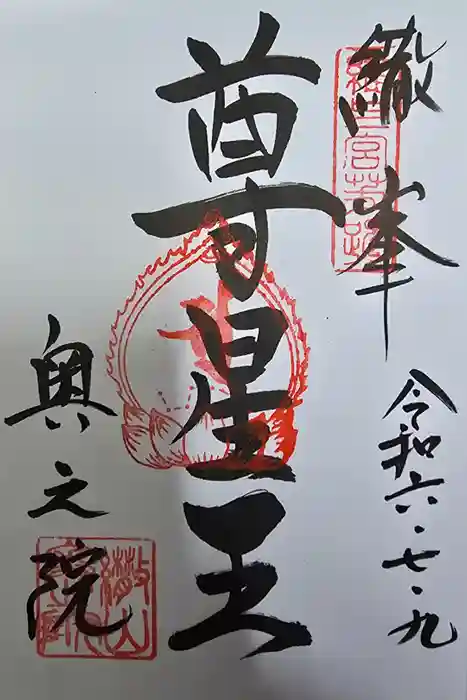 繖峯
令和六・七・九
尊星王
奥之院